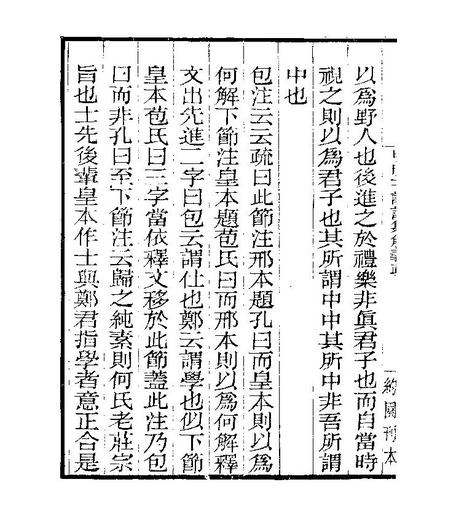 以爲野人也後進之於禮樂非眞君子也而自當時
視之則以爲君子也其所謂中中其所中非吾所謂
中也
包注云云疏曰此節注邢本題孔曰而皇本則以爲
何解下節注皇本題苞氏曰而邢本則以爲何解釋
文出先進二字曰包云謂仕也鄭云謂學也似下節
皇本苞氏曰三字當依釋文移於此節蓋此注乃包
曰而非孔曰至下節注云歸之純素則何氏老莊宗
旨也士先後輩皇本作士與鄭君指學者意正合是
約園刊本